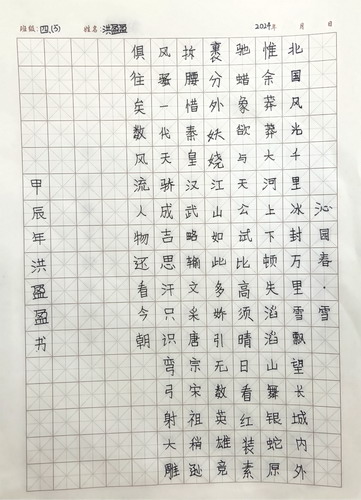 班级：四.(5) 姓名：洪盈盈 2024年 月 日
沁园春·雪
北国风光千里冰封万里雪飘望长城内外
惟余莽莽大河上下顿失滔滔山舞银蛇原
驰蜡象欲与天公试比高须晴日看红装素
裹分外妖娆江山如此多娇引无数英雄竞
折腰惜秦皇汉武略输文采唐宗宋祖稍逊
风骚一代天骄成吉思汗只识弯弓射大雕
俱往矣数风流人物还看今朝
甲辰年洪盈盈书